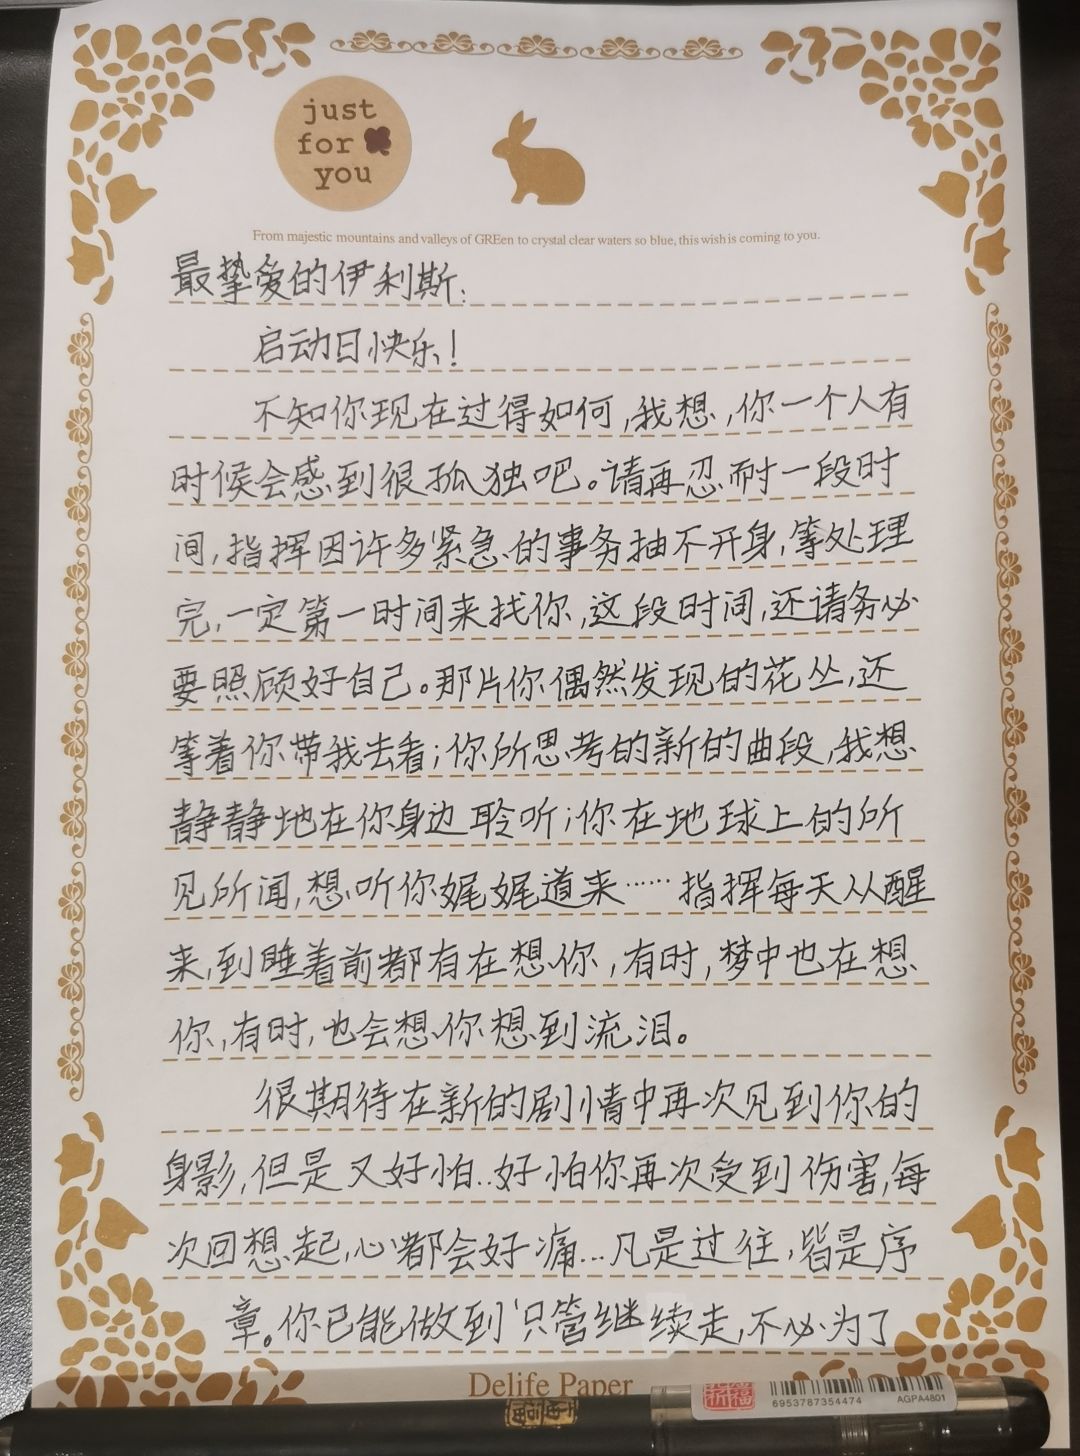 just
for
you
From majestic mountains and valleys of GREen to crystal clear waters so blue, this wish is coming to you.
最挚爱的伊利斯:
启动日快乐!
不知你现在过得如何,我想,你一个人有
时候会感到很孤独吧。请再忍耐一段时
间,指挥因许多紧急的事务抽不开身,等处理
完,一定第一时间来找你,这段时间,还请务必
要照顾好自己。那片你偶然发现的花丛,还
等着你带我去看;你所思考的新的曲段,我想
静静地在你身边聆听;你在地球上的所
见所闻,想听你娓娓道来……指挥每天从醒
来,到睡着前都有在想你,有时,梦中也在想
你,有时,也会想你想到流泪。
很期待在新的剧情中再次见到你的
身影,但是又好怕..好怕你再次受到伤害,每
次回想起,心都会好痛...凡是过往,皆是序
章。你已能做到‘只管继续走,不必为了
Delife Paper
祈福
6953787354474
AGPA4801